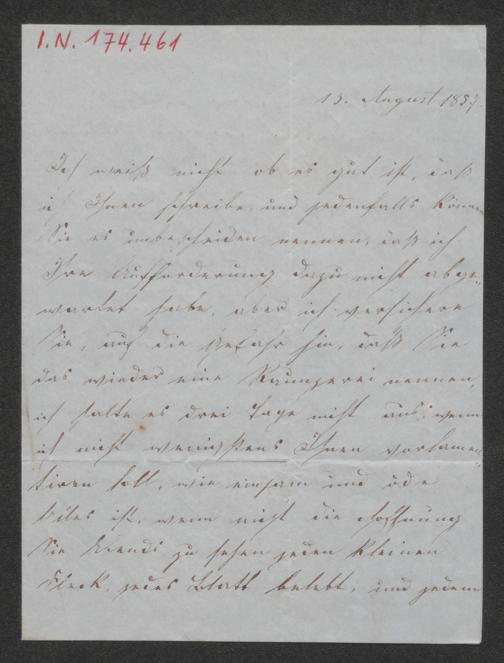 I.N. 174.461
13. August 185
Ich weiß nicht ob es gut ist, daß
ich Ihnen schreibe, und jedenfalls können
Sie es unbescheiden nennen, daß ich
Ihre Aufforderung dazu nicht abge-
wartet habe, aber ich versichere
Sie, auf die Gefahr hin, daß Sie
das wieder eine nennen,
ich halte es drei Tage nicht aus, wenn
ich nicht wenigstens Ihnen vorlamen-
tiren soll, wie einsam und öde
Alles ist, wenn nicht die Hoffnung
Sie Abends zu sehen jeden kleinen
Fleck, jedes Blatt belebt, und jedem